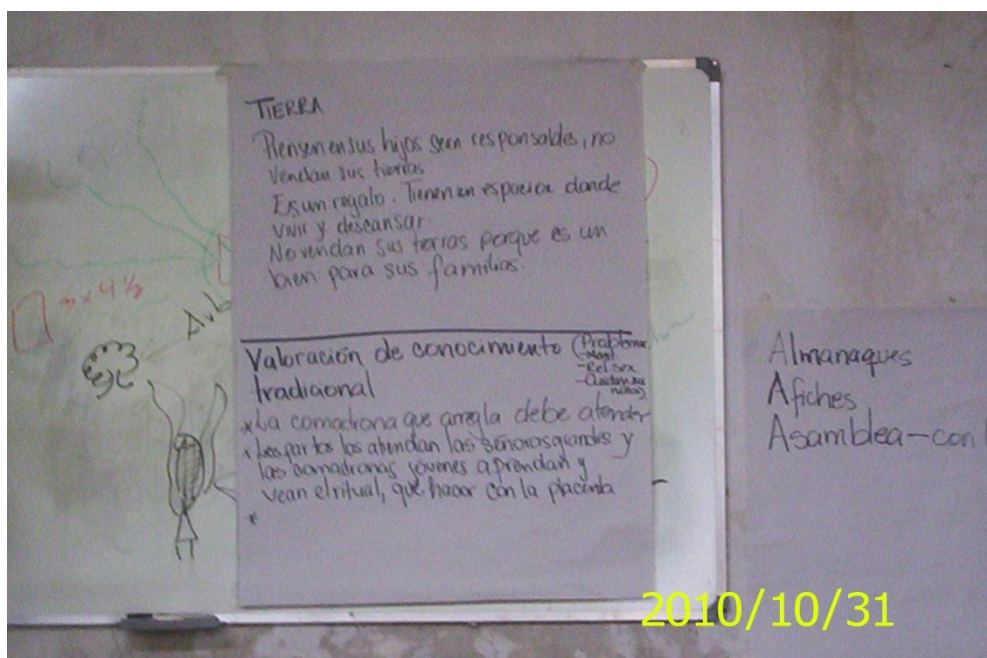 TIERRA
Piensen en sus hijos sean responsables, no
vendan sus tierras
Es un regalo. Tienen un espacio donde
vivir y descansar
No vendan sus tierras porque es un
bien para sus familias.
Valoración de conocimiento (Problema
tradicional
-Rel.sex
* La comadrona que arregla debe atender
* Los partos los atiendan las señoras grandes y
las comadronas jóvenes aprendan y
vean el ritual, que hacer con la placenta
*
3 x 4 ½
Almanaques
Afiches
Asamblea-con
2010/10/31